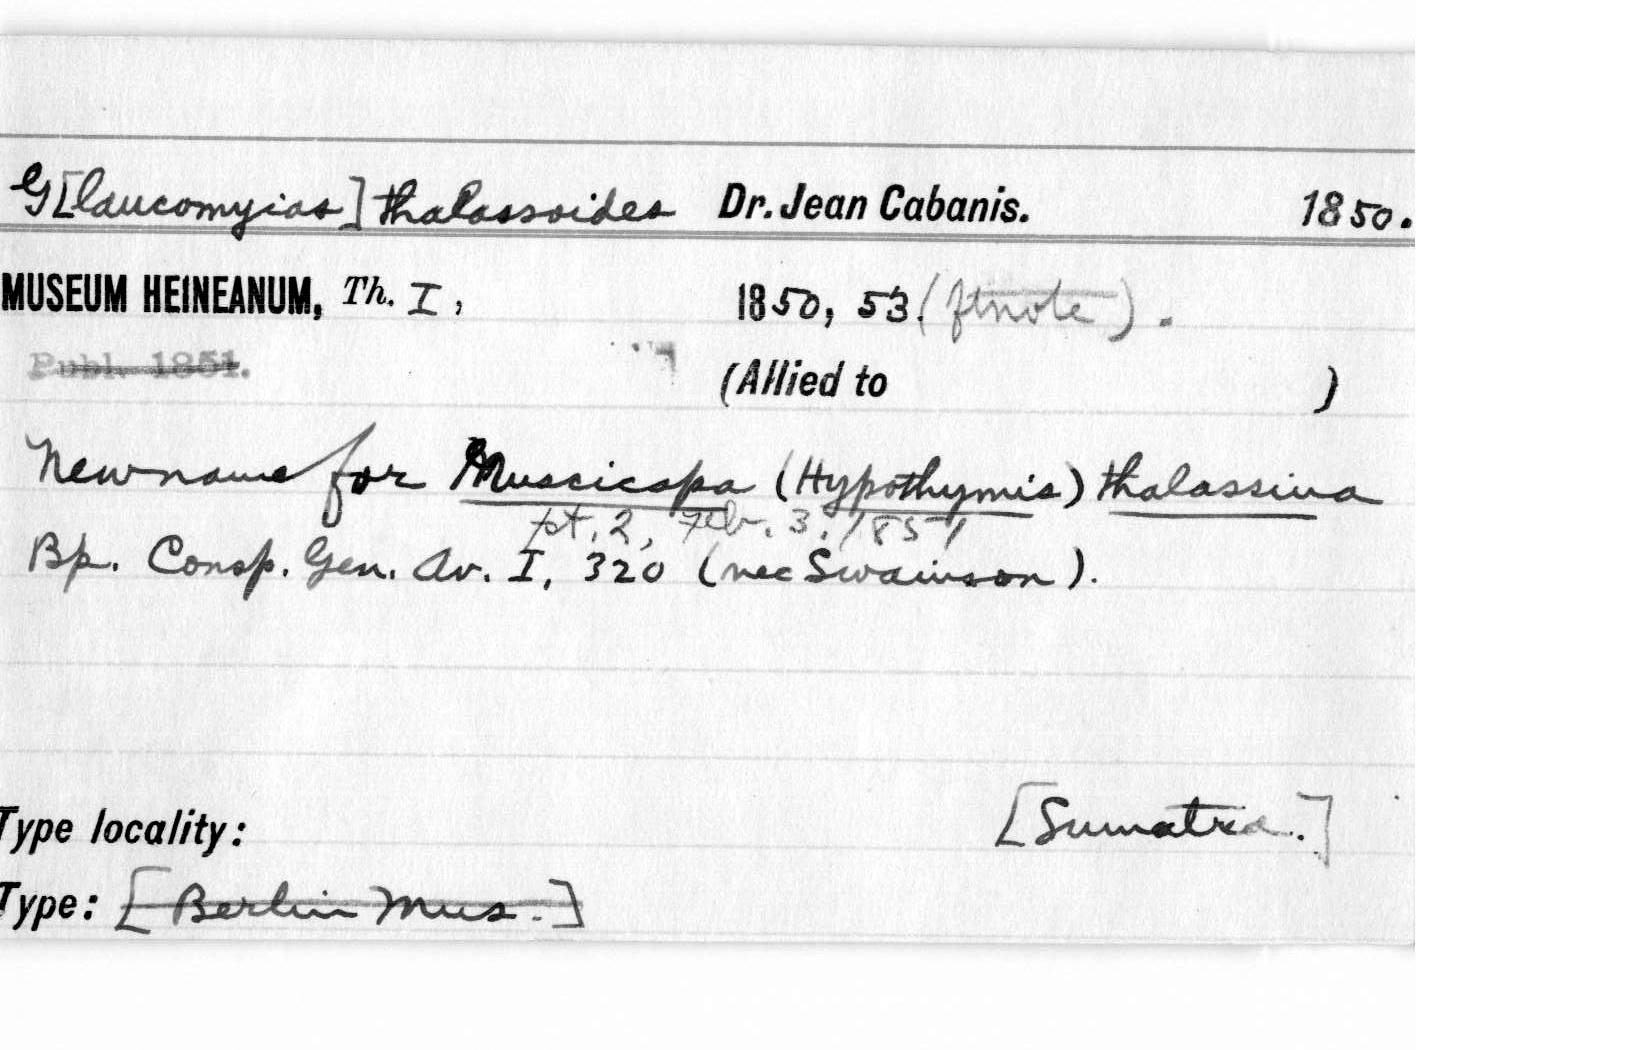 G[laucomyias] thalassoides Dr. Jean Cabanis. 1850.
MUSEUM HEINEANUM, Th. I, 1850, 53. (ftnote).
Publ. 1851.
(Allied to )
New name for Muscicapa (Hypothymis) thalassina
pt. 2, Feb. 3, 1851
Bp. Consp. Gen. Av. I, 320 (nec Swainson).
Type locality: [Sumatra.]
Type: [Berlin Mus.]